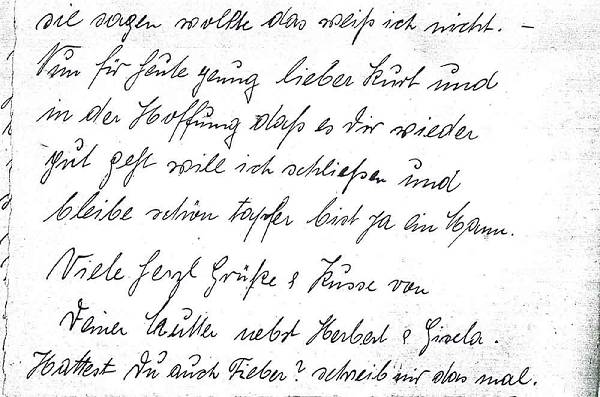 sie sagen wollte das weiß ich nicht. –
Nun für heute genug lieber Kurt und
in der Hoffnung daß es Dir wieder
gut geht will ich schließen und
bleibe schön tapfer bist ja ein Mann.
Viele herzl Grüße & Küsse von
Deiner Mutter nebst Herbert & Gisela.
Hattest Du auch Fieber? schreib mir das mal.